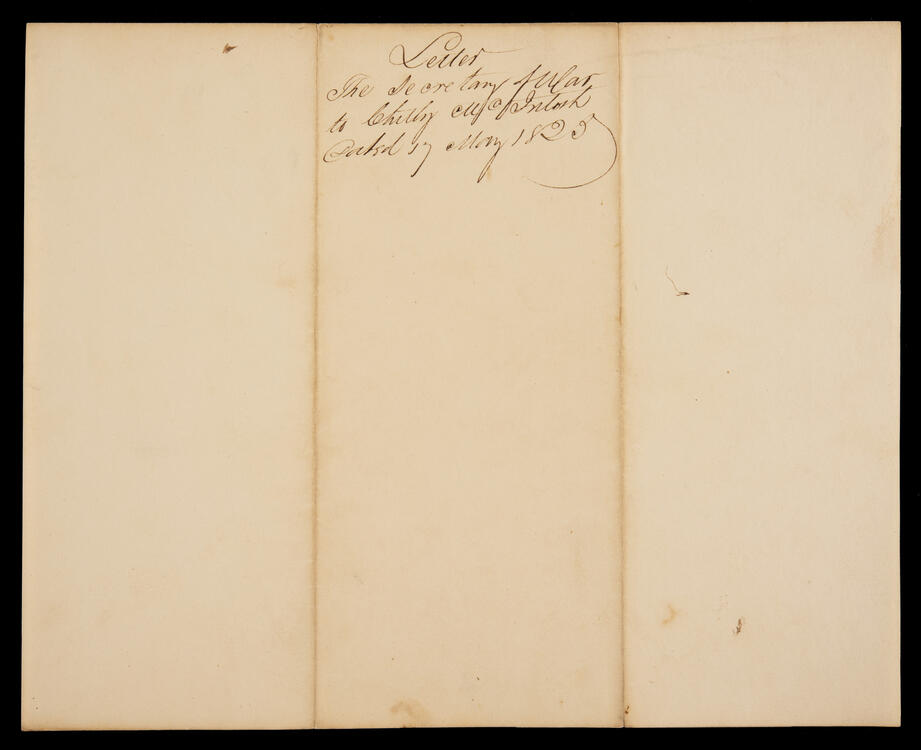 Letter
The Secretary of War
to Chilly McIntosh
Dated 17 May 1825